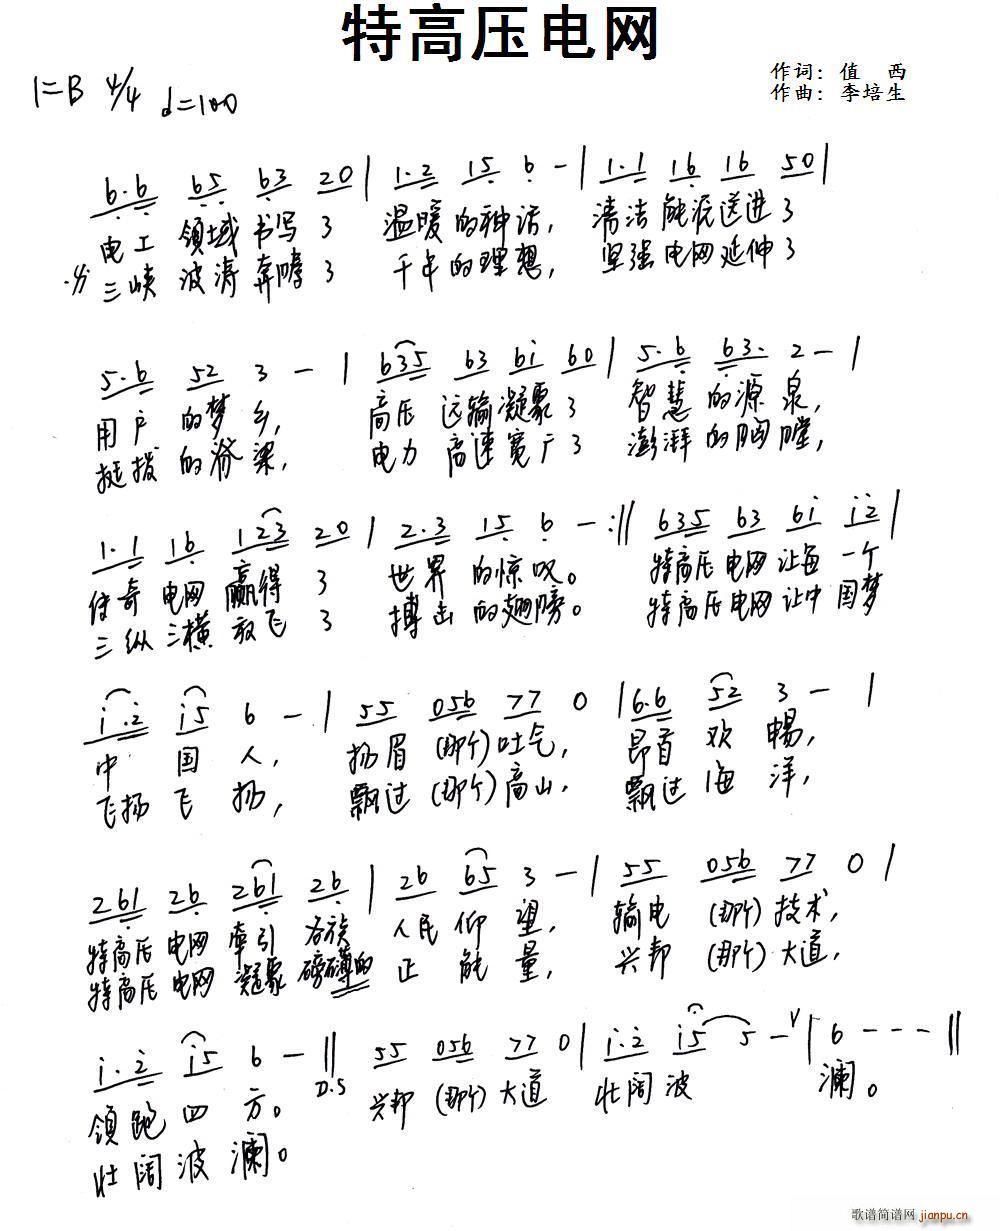 特高压电网
作词：值 西
作曲：李培生
1=B 4/4 ♩=100
6·6 65 63 20 | 1·2 15 6 - | 1·1 16 16 50 |
电工 领域 书写了 温暖的神话， 清洁能源送进了
三峡 波涛 奔腾了 千年的理想， 坚强电网延伸了
5·6 52 3 - | 635 63 6i 60 | 5·6 63· 2 - |
用户 的梦乡， 高压 远输凝聚了 智慧 的源泉，
挺拔 的脊梁， 电力 高速宽广了 澎湃 的胸膛，
1·1 16 123 20 | 2·3 15 6 - :|| 635 63 6i i2 |
传奇 电网 赢得 了 世界 的惊叹。 特高压电网让每一个
三纵三横 放飞 了 搏击 的翅膀。 特高压电网让中国梦
i·2 i5 6 - | 55 056 77 0 | 6·6 52 3 - |
中 国 人， 扬眉 (那个) 吐气， 昂首 欢 畅，
飞扬 飞 扬， 飘过 (那个) 高山， 飘过 海 洋，
261 26 261 26 | 26 65 3 - | 55 056 77 0 |
特高压 电网 牵引 各族 人民 仰 望， 输电 (那个) 技术，
特高压 电网 凝聚 磅礴的 正 能 量， 兴邦 (那个) 大道，
i·2 i5 6 - || 55 056 77 0 | i·2 i5 5 - V | 6 - - - ||
D.S
领跑 四 方。 兴邦 (那个) 大道 壮阔 波 澜。
壮阔 波 澜。
歌谱简谱网
jianpu.cn